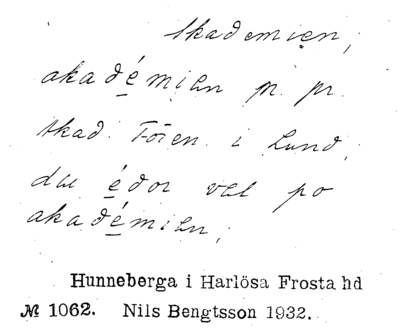 Akademien,
akadémien n. pr.
Akad. Fören. i Lund,
du édor vel po
akadémien,
Hunneberga i Harlösa Frosta hd
№ 1062. Nils Bengtsson 1932.